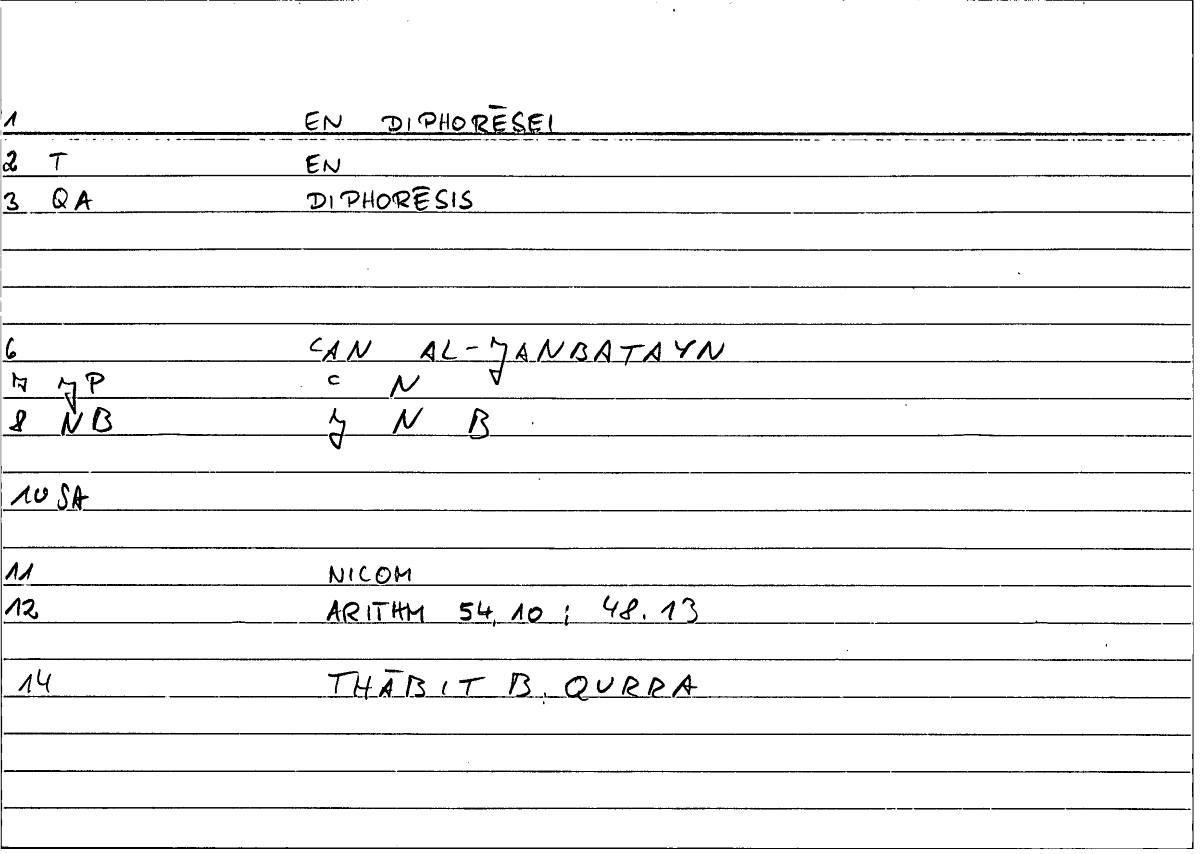 1 EN DIPHORĒSEI
2 T EN
3 QA DIPHORĒSIS
6 ʿAN AL-JANBATAYN
7 JP ʿ N
8 NB J N B
10 SA
11 NICOM
12 ARITHM 54,10; 48.13
14 THĀBIT B. QURRA